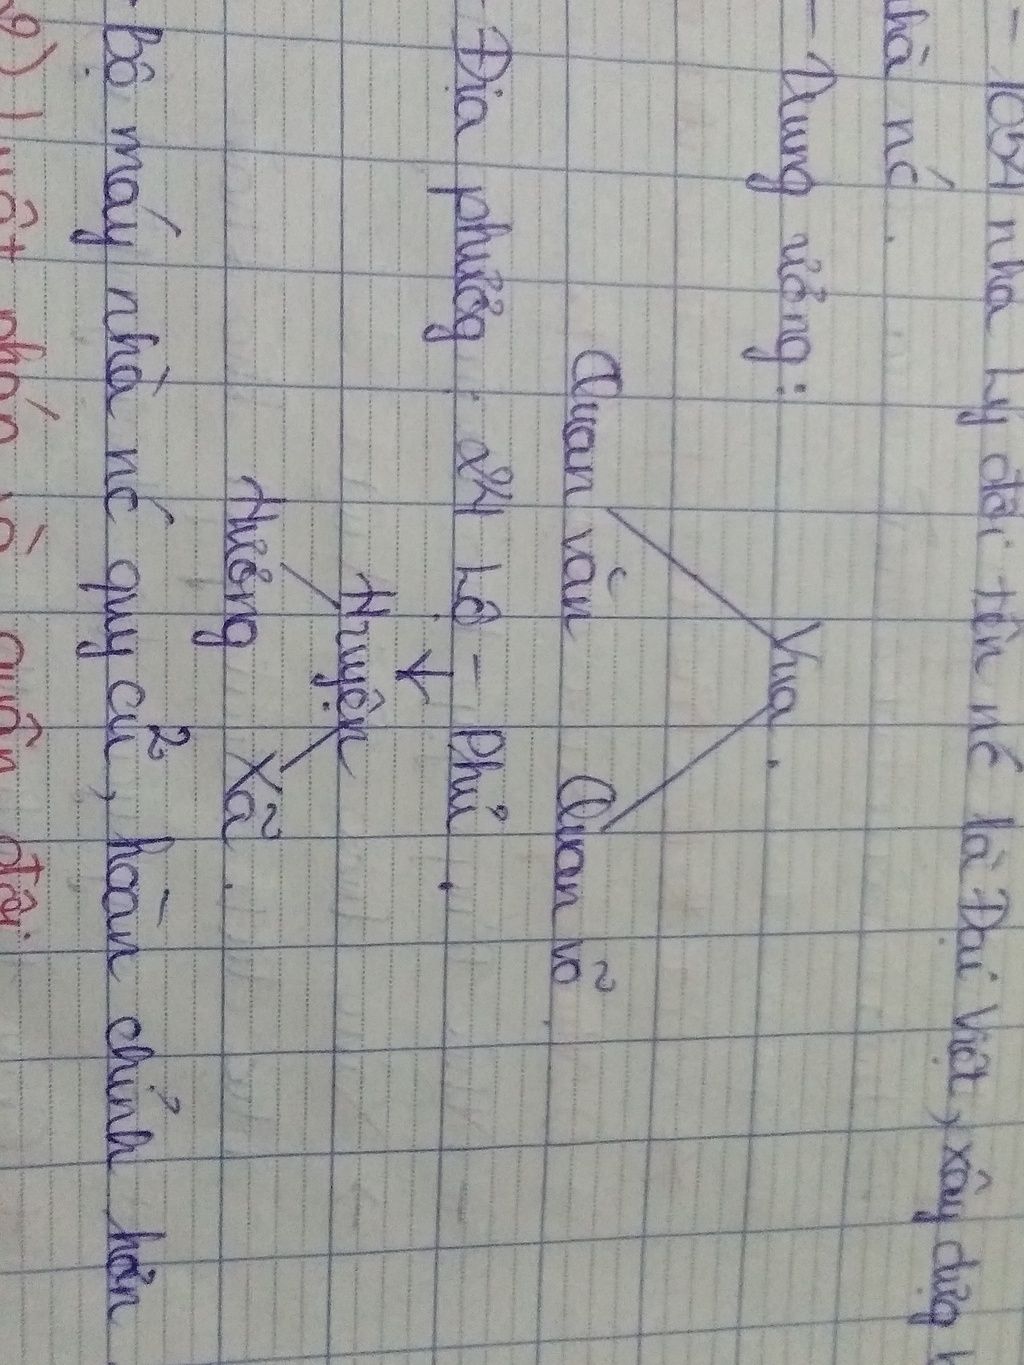 - 1054 nhà Lý đổi tên nc' là Đại Việt, xây dựng
nhà nc'.
- Trung ương:
Vua.
Quan văn Quan võ
- Địa phương: 24 Lộ - Phủ.
↓
Huyện
Hương Xã.
- bộ máy nhà nc' quy củ, hoàn chỉnh hơn
2) Luật pháp và quân đội